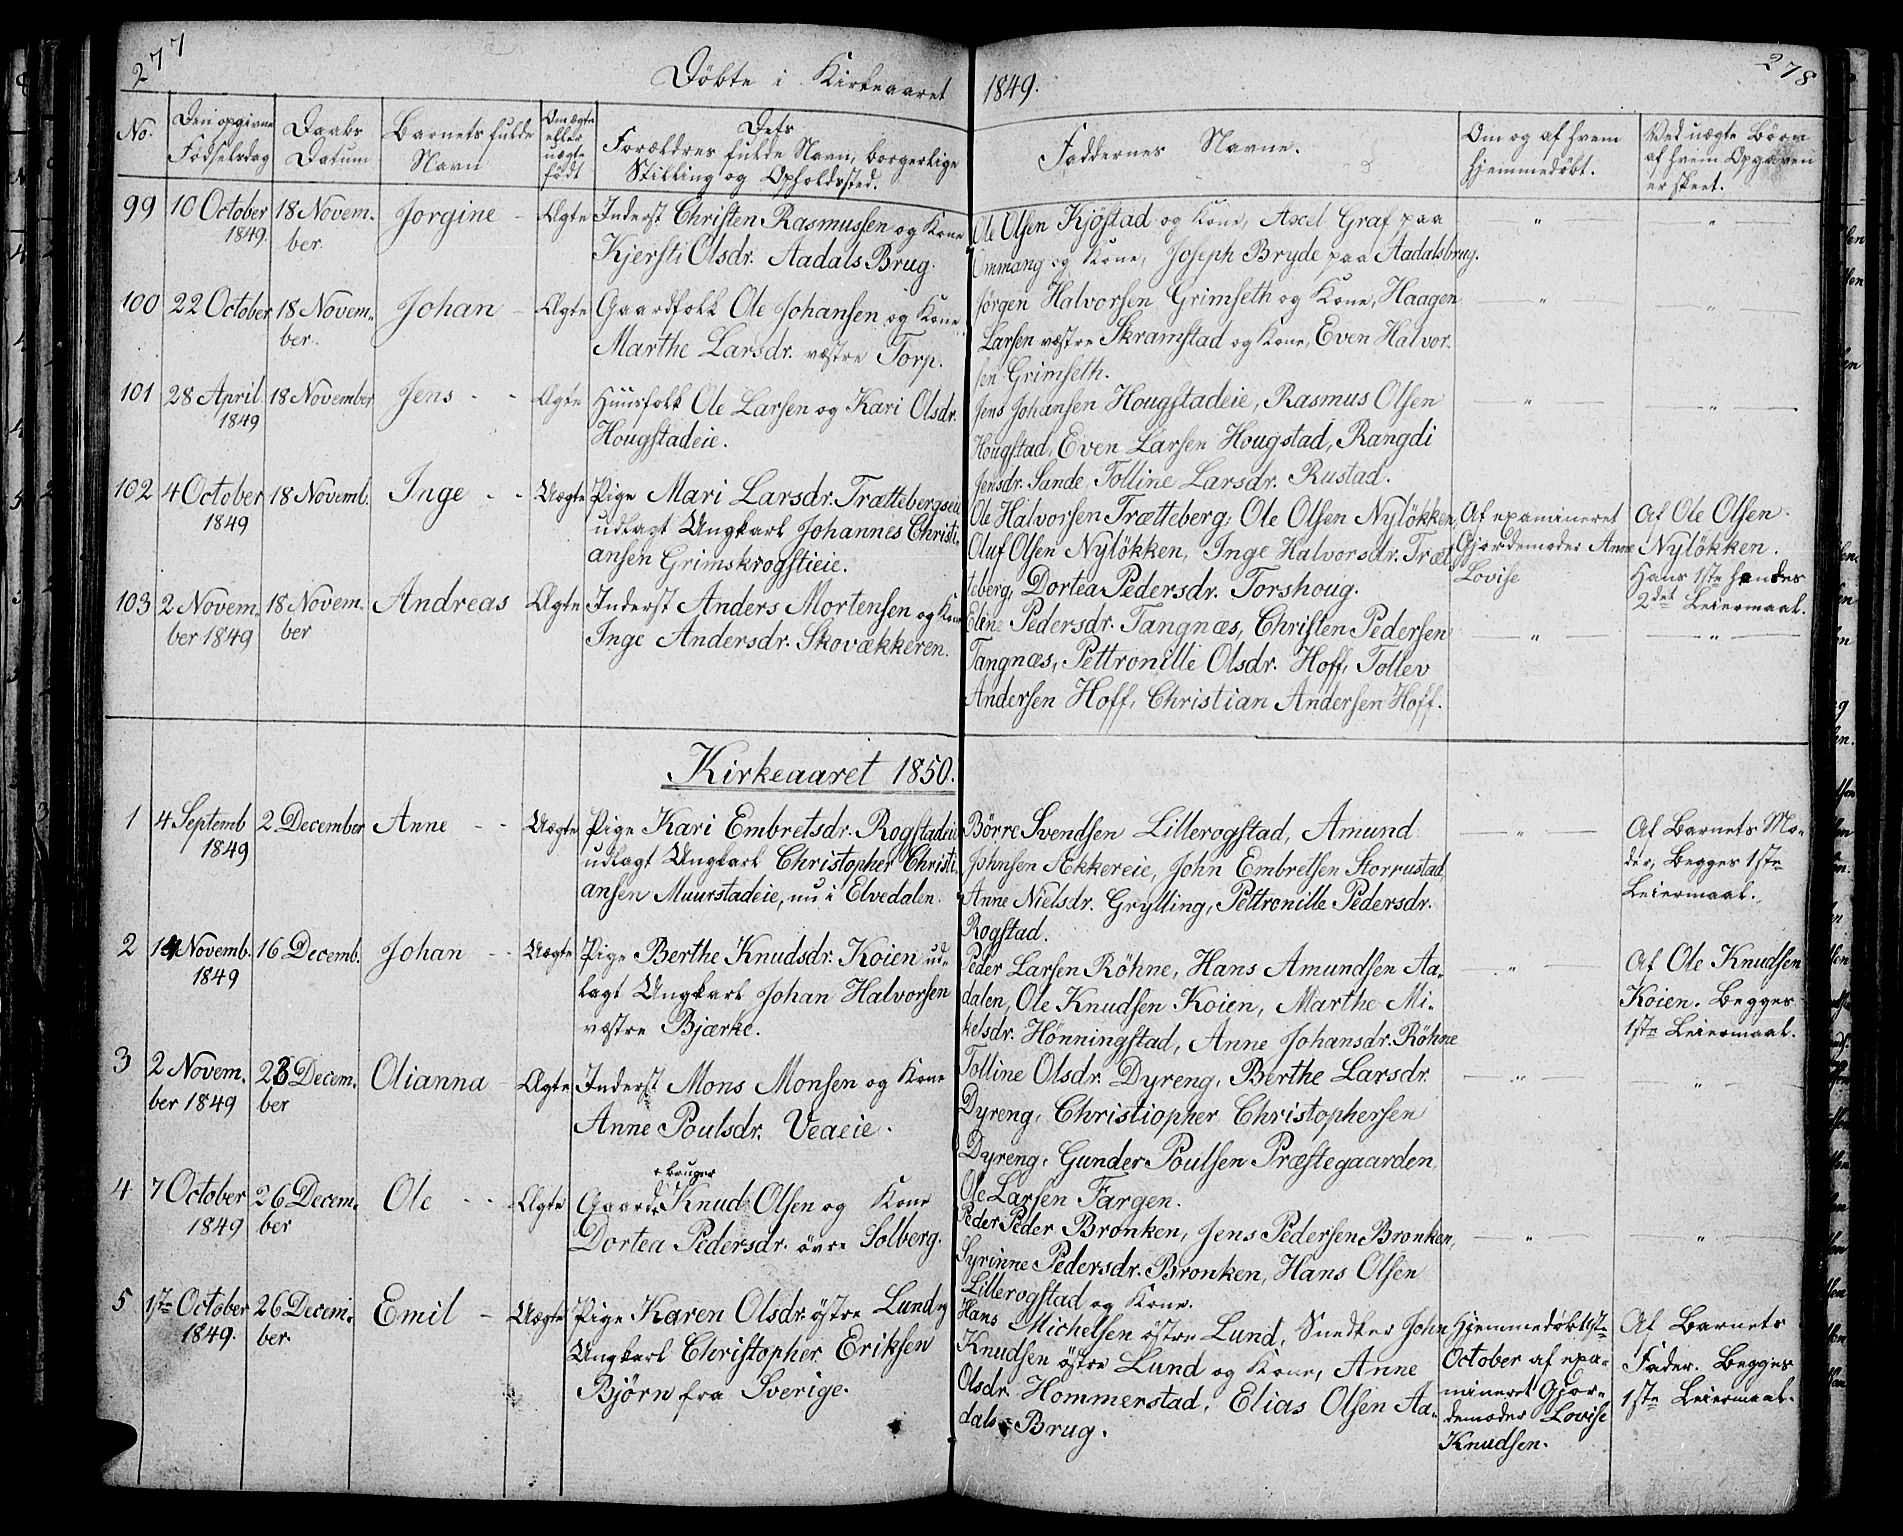 277
Döbte i Kirkeaaret
No.
Den opgivne
Födselsdag
Daabs
Datum
Barnets fulde
Navn
Om ægte
eller
uægte
födt
Dets
Forældres fulde Navn, borgerlige
Stilling og Opholdssted.
99
10 October
1849.
18 Novem-
ber.
Jorgine -
Ægte
Inderst Christen Rasmussen og Kone
Kjersti Olsdr. Aadals Brug.
100
22 October
18 Novem-
ber.
Johan -
Ægte
Gaardfolk Ole Johansen og Kone
Marthe Larsdr. vestre Torp.
101
28 April
1849
18 November
Jens - -
Ægte
Huusfolk Ole Larsen og Kari Olsdr.
Hougstadeie.
102
4 October
1849
18 Novemb.
Inge - -
Uægte
Pige Mari Larsdr. Trættebergseie
udlagt Ungkarl Johannes Christi-
ansen Grimskrogstieie.
103
2 Novem-
ber 1849
18 Novem-
ber
Andreas
Ægte
Inderst Anders Mortensen og Kone
Inge Andersdr. Skovækkeren.
Kirkeaaret 1850.
1
4 Septemb
1849
2 December
Anne - -
Uægte
Pige Kari Embretsdr. Rogstadeie
udlagt Ungkarl Christopher Christi-
ansen Muurstadeie, nu i Elvedalen.
2
14 Novemb.
1849
16 Decemb.
Johan - -
Uægte
Pige Berthe Knudsdr. Koien ud-
lagt Ungkarl Johan Halvorsen
vestre Bjærke.
3
2 Novem-
ber 1849
23 Decem-
ber
Olianna -
Ægte
Inderst Mons Monsen og Kone
Anne Poulsdr. Veaeie.
4
7 October
1849
26 Decem-
ber
Ole - -
Ægte
bruger
Gaard Knud Olsen og Kone
Dortea Pedersdr. övre Solberg.
5
1ste October
1849.
26 Decem-
ber.
Emil -
Uægte
Pige Karen Olsdr. östre Lund og
Ungkarl Christopher Eriksen
Björn fra Sverige.
1849.
278
Faddernes Navne.
Om og af hvem
hjemmedöbt.
Ved uægte Börn
af hvem Opgaven
er skeet.
Ole Olsen Kjöstad og Kone, Axel Graf paa
Ommang og Kone, Joseph Bryde paa Aadalsbrug.
"
"
Jörgen Halvorsen Grimseth og Kone, Haagen
Larsen vestre Skramstad og Kone, Even Halvor-
sen Grimseth.
"
"
Jens Johansen Hougstadeie, Rasmus Olsen
Hougstad, Even Larsen Hougstad, Rangdi
Jensdr. Sande, Tolline Larsdr. Rustad.
"
"
Ole Halvorsen Trætteberg, Ole Olsen Nylökken,
Oluf Olsen Nylökken, Inge Halvorsdr. Træt-
teberg, Dortea Pedersdr. Torshoug.
Af examineret
Gjordemoder Anne
Lovise
Af Ole Olsen
Nylökken.
Hans 1ste hendes
2det Leiermaal.
Eline Pedersdr. Tangnæs, Christen Pedersen
Tangnæs, Pettronille Olsdr. Hoff, Tollev
Andersen Hoff, Christian Andersen Hoff.
"
"
Börre Svendsen Lillerogstad, Amund
Johnsen Ækkereie, John Embretsen Storrustad,
Anne Nielsdr. Grylling, Pettronille Pedersdr.
Rogstad.
"
Af Barnets Mo-
der, Begges 1ste
Leiermaal.
Peder Larsen Röhne, Hans Amundsen Aa-
dalen, Ole Knudsen Koien, Marthe Mi-
kelsdr. Hönningstad, Anne Johansdr. Röhne
"
Af Ole Knudsen
Koien. Begges
1ste Leiermaal.
Tolline Olsdr. Dyreng, Berthe Larsdr.
Dyreng, Christiopher Christophersen
Dyreng, Gunder Poulsen Præstegaarden,
Ole Larsen Fargen.
"
"
Peder Peder Bronken, Jens Pedersen Bronken,
Syrinne Pedersdr. Bronken, Hans Olsen
Lillerogstad og Kone.
"
"
Hans Michelsen östre Lund, Snedker John
Knudsen östre Lund og Kone, Anne
Olsdr. Hommerstad, Elias Olsen Aa-
dals-Brug.
Hjemmedöbt 1ste
October af exa-
mineret Gjor-
demoder Lovise
Knudsen.
Af Barnets
Fader. Begges
1ste Leiermaal.